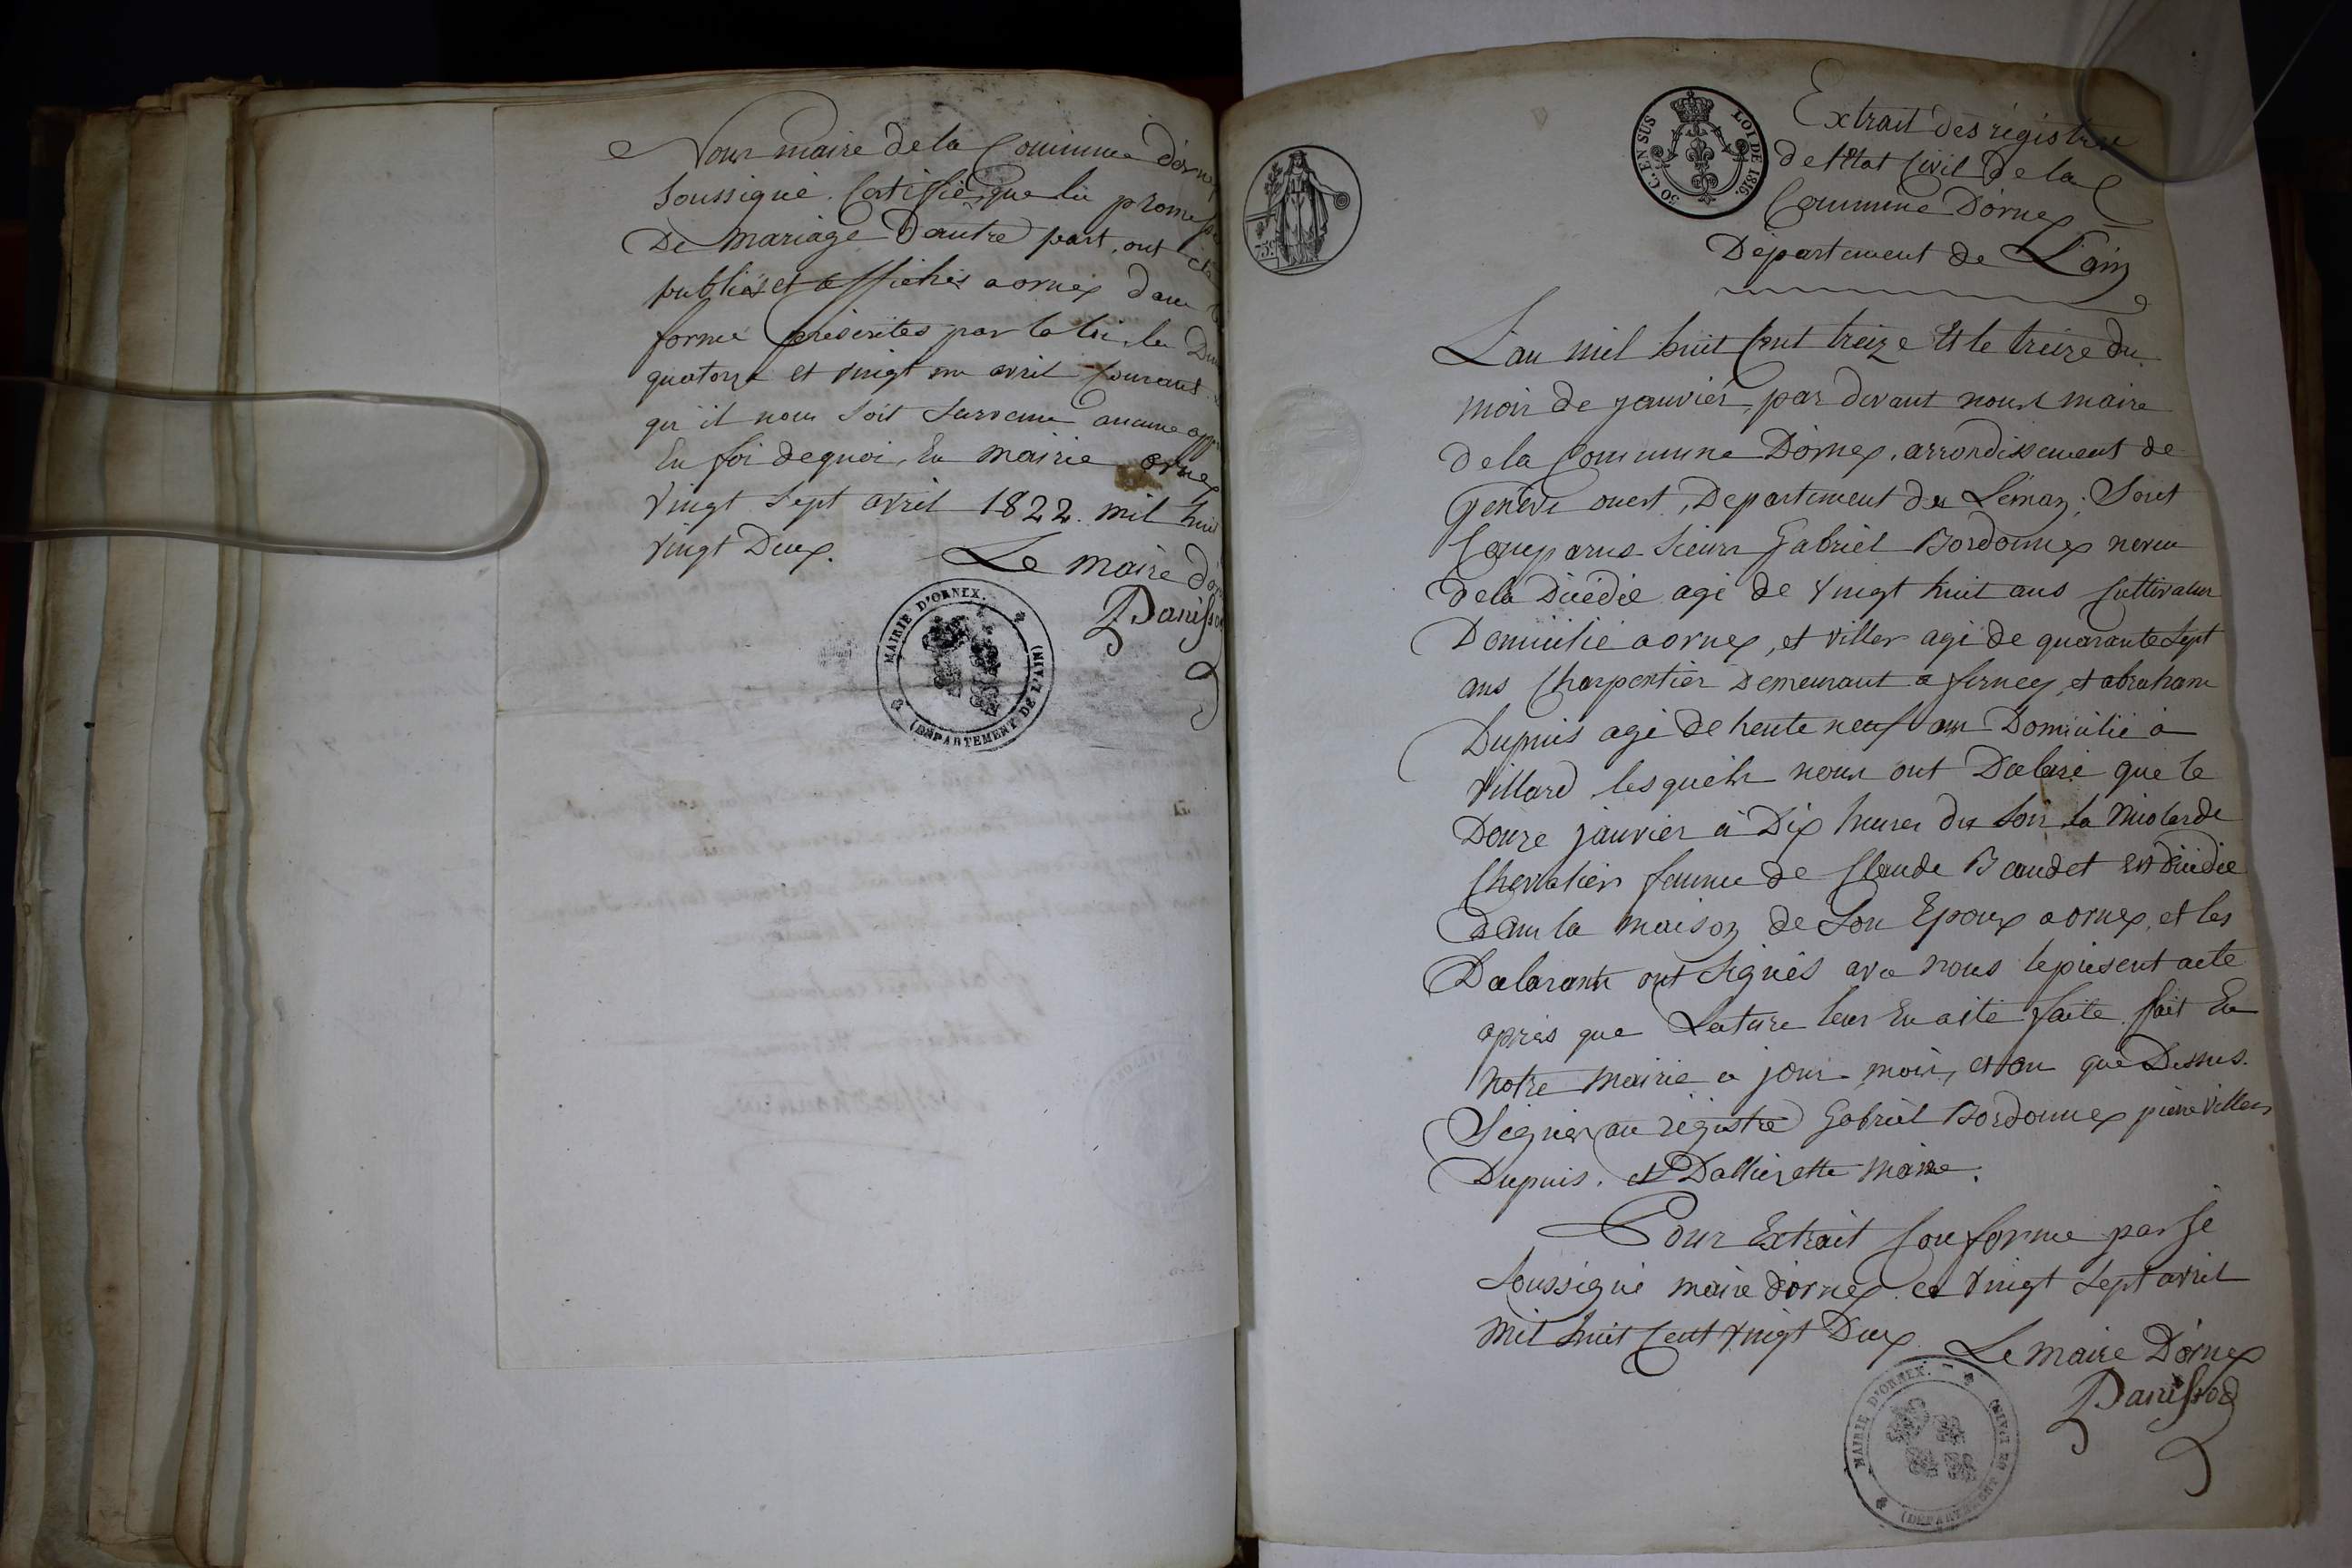 Nous maire de la Commune d'ornex
Soussigné. Certifie que les
De mariage D'autre part, ont
publiés et affichés a ornex dans
forme préscrites par la loi, les
quatorze et vingt un avril Courant
qu'il nous Soit Survenu aucune
En foi de quoi, En mairie ornex
vingt Sept avril 1822. mil huit
vingt Deux.
Le maire
Danissod
MAIRIE D'ORNEX.
(DÉPARTEMENT DE L'AIN)
75 c.
50 C. EN SUS
LOI DE 1816.
Extrait des régistres
de l'Etat Civil de la
Commune D'ornex
Département de L'ain
L'an mil huit Cent treize Et le treize du
mois de janvier, par devant nous maire
de la Commune D'ornex, arrondissement de
Genève ouest, Département du Léman; Sont
Comparus Sieurs Gabriel Bordonnex neveu
de la Décédée agé de vingt huit ans Cultivateur
Domicilié a ornex, et viller agé de quarante Sept
ans Charpentier Demeurant a ferney, et abraham
Dupuis agé de trente neuf ans Domicilié à
Villard lesquels nous ont Déclaré que le
Douze janvier à Dix heures du Soir la
Chevalier femme de Claude Baudet est Décédée
dans la maison de Son Epoux a ornex, et les
Déclarants ont Signés avec nous le présent acte
après que Lecture leur En a été faite. fait En
notre mairie a jour mois, et an que Dessus.
Signés au régistre Gabriel Bordonnex pierre viller
Dupuis. et Dallierette maire.
Pour Extrait Conforme par Je
Soussigné maire d'ornex ce vingt Sept avril
mil huit Cent vingt Deux
Le maire D'ornex
Danissod
MAIRIE D'ORNEX.
(DÉPARTEMENT DE L'AIN)